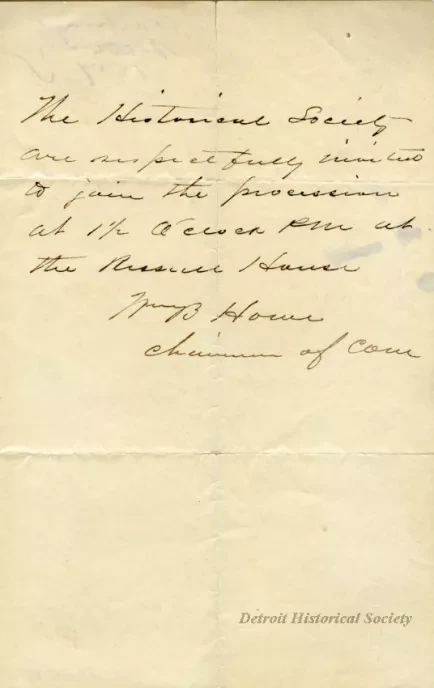 The Historical Society
are respectfully invited
to join the procession
at 1½ O'clock PM at
the Russell House
Wm B Howe
chairman of Com
Detroit Historical Society